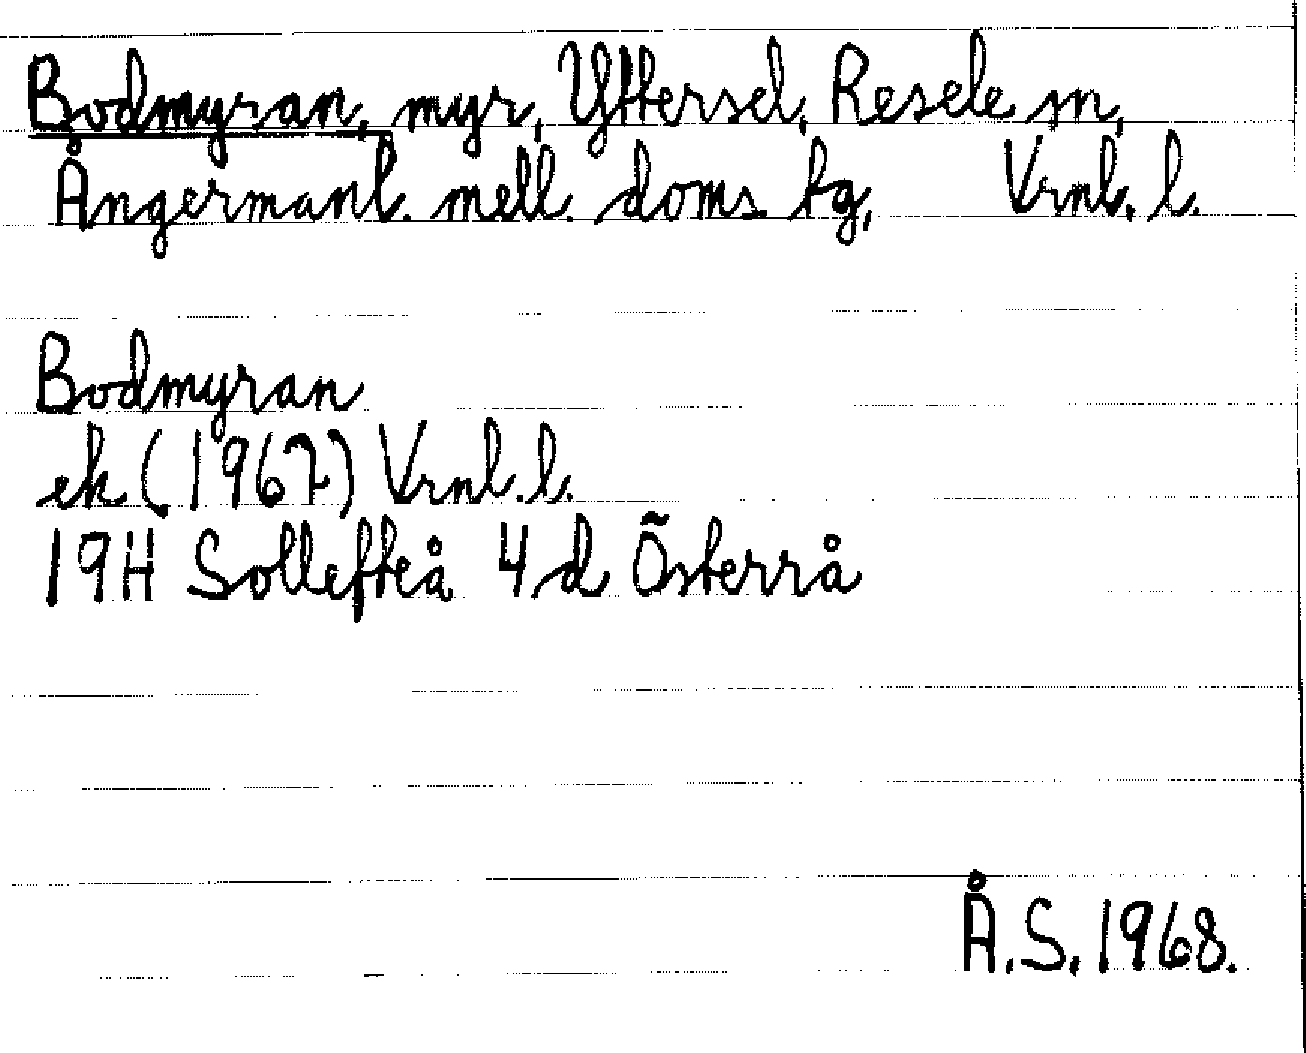 Bodmyran, myr, Yttersel, Resele sn,
Ångermanl. mell. doms. tg, Vrnl. l.
Bodmyran
ek (1967) Vrnl. l.
19H Sollefteå 4d Österrå
Å.S. 1968.